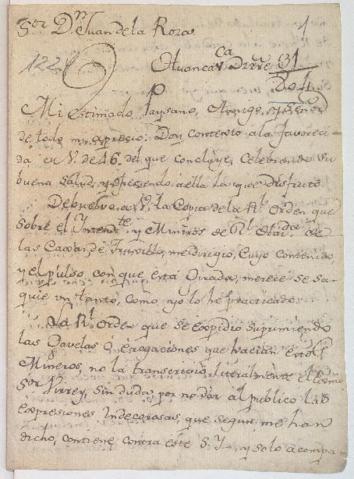 Sor Dn Juan de la Rosa
1
122
Huanca Dizre 31
Mi Estimado Paysano, Amigo, y Señor
de todo mi aprecio: Doy contexto a la favoreci
da de V. de 16. del que concluye, Celebrando su
buena Salud, y ofreciendo a ella la que disfruto
Debuelvo a V. la Copia de la Rl Orden que
sobre el y Minros de Rl
las Caxas de Truxillo, me dirigio, Cuyo contenido
y el pulso, con que está Dictada, merece se sa-
que un tanto, como yo lo he practicado
La Rl Orden que se expidio suprimiendo
las Gavelas ó erogaciones que hacian
Mineros, no la transcrivio literalmente el
Sor Virrey, sin duda, por no dar al publico las
expresiones indecorosas, que segun me han
dicho, contiene contra este S. y solo acompa